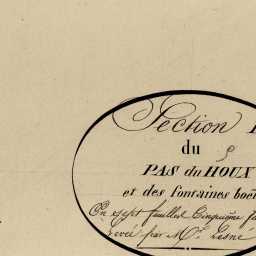 Section
du
PAS du HOUX
et des fontaines
En sept feuilles Cinquième
Levée par Mr. Lesné